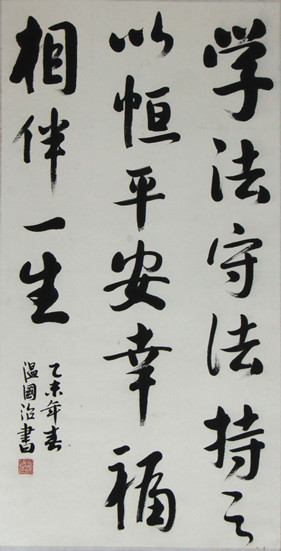 学法守法持之
以恒平安幸福
相伴一生
乙未年春
温國治書